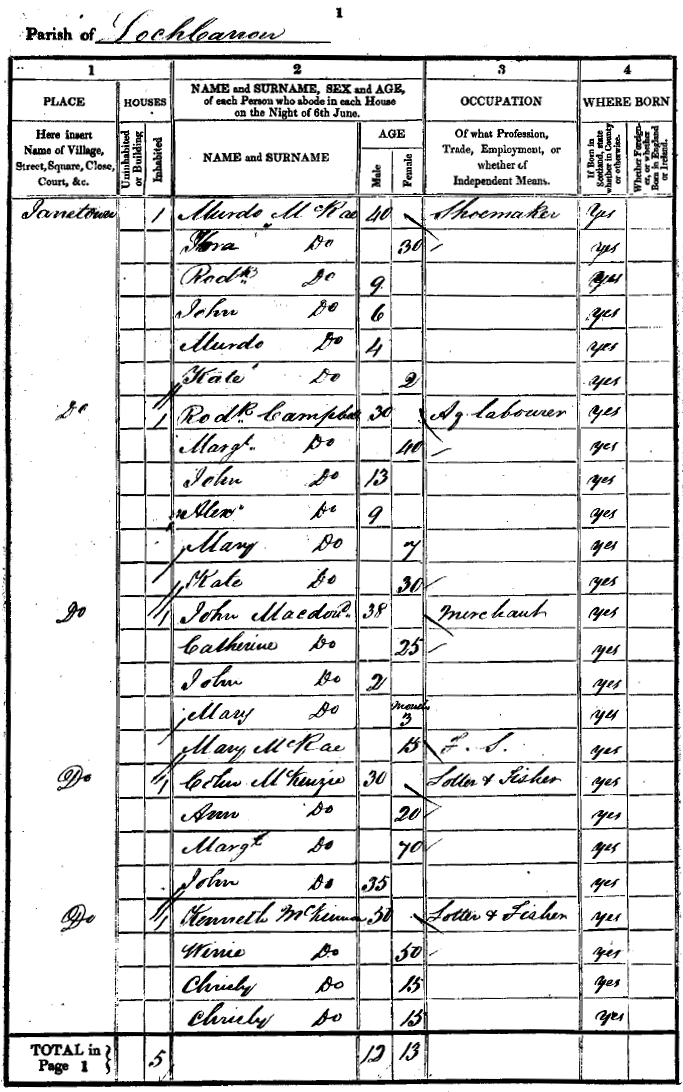 1
Parish of Lochcarron
1 2 3 4
PLACE HOUSES NAME and SURNAME, SEX and AGE, of each Person who abode in each House on the Night of 6th June. OCCUPATION WHERE BORN
Here insert Name of Village, Street, Square, Close, Court, &c. Uninhabited or Building Inhabited NAME and SURNAME AGE Male Female Of what Profession, Trade, Employment, or whether of Independent Means. If Born in Scotland, state whether in County or otherwise. Whether Foreigner, or whether Born in England or Ireland.
Janetown 1 Murdo McRae 40 Shoemaker Yes
Flora Do 30 yes
Rodk. Do 9 yes
John Do 6 yes
Murdo Do 4 yes
Kate Do 2 yes
Do 1 Rodk. Campbell 30 Ag labourer yes
Margt. Do 40 yes
John Do 13 yes
Alexr. Do 9 yes
Mary Do 7 yes
Kate Do 30 yes
Do 1 John Macdond. 38 Merchant yes
Catherine Do 25 yes
John Do 2 yes
Mary Do months 3 yes
Mary McRae 15 F. S. yes
Do 1 Colin McKenzie 30 Lotter & Fisher yes
Ann Do 20 yes
Margt Do 70 yes
John Do 35 yes
Do 1 Kenneth McKinnon 50 Lotter & Fisher yes
Do 50 yes
Chirsty Do 15 yes
Chirsty Do 15 yes
TOTAL in Page 1 } 5 12 13